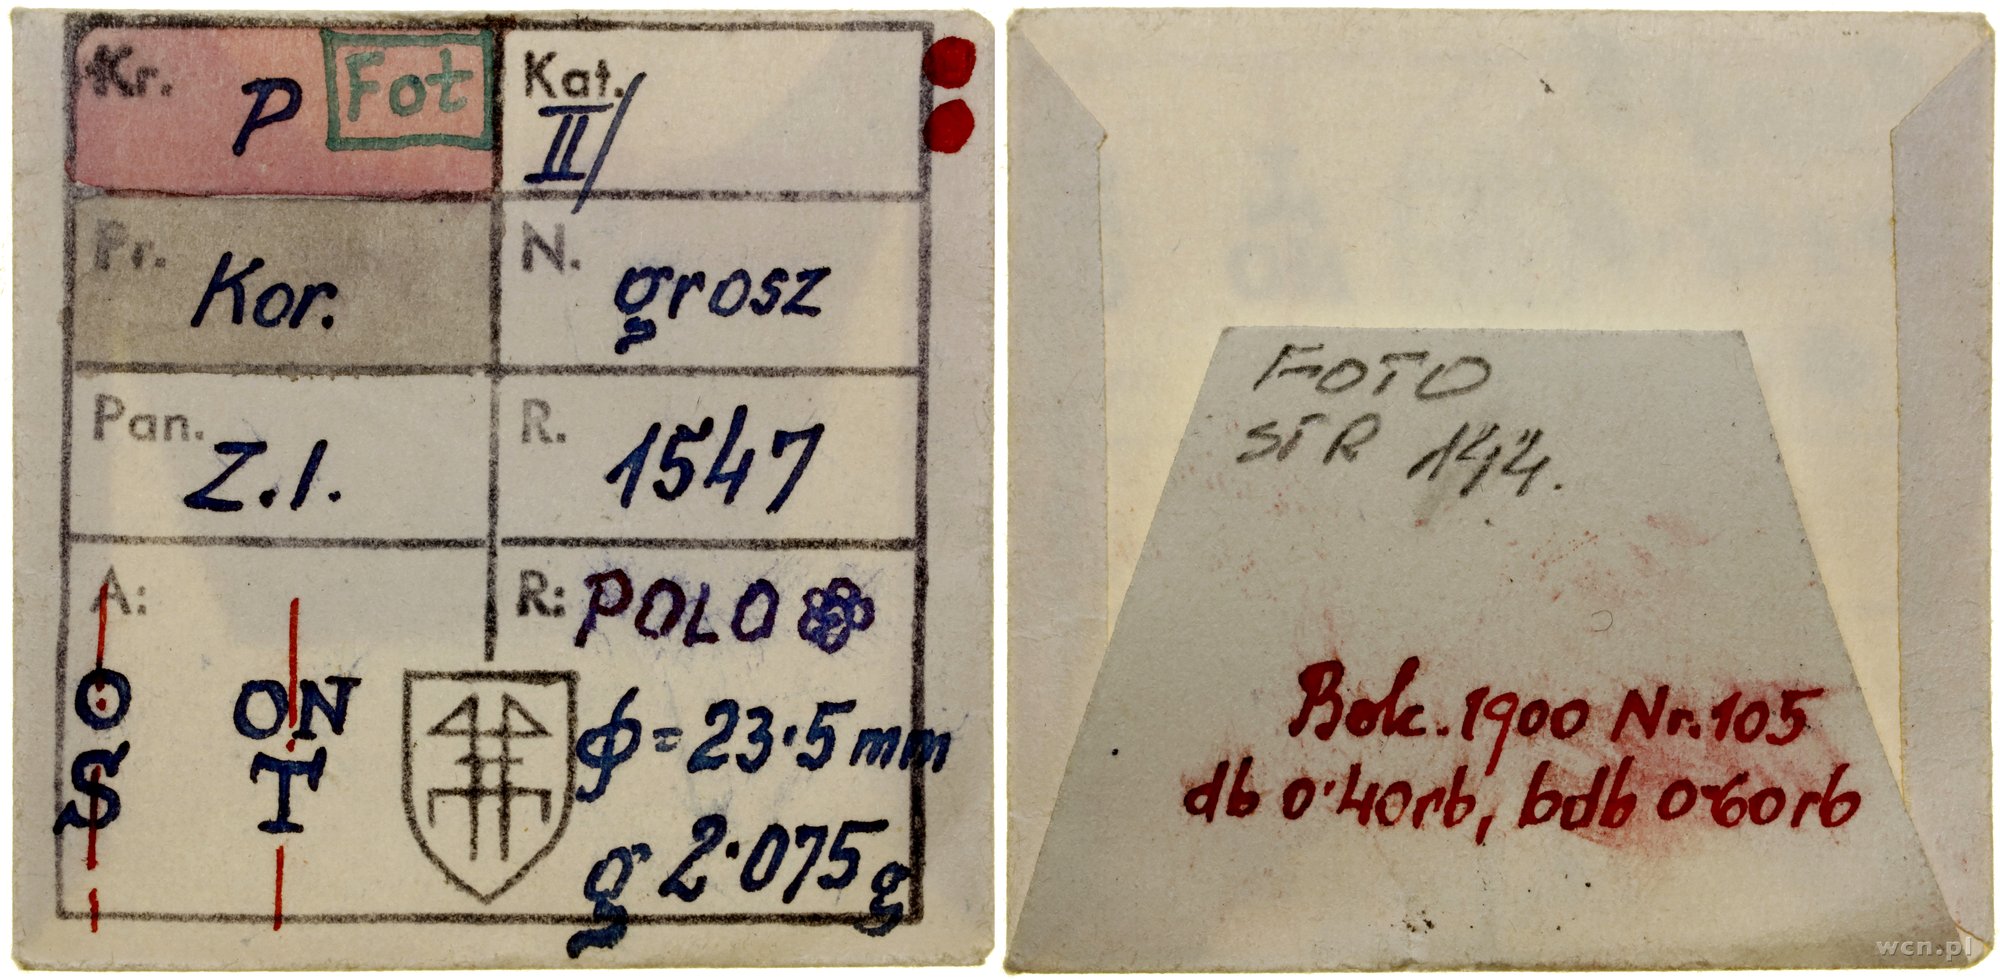 Kr. P Fot
Kat. II/
Pr. Kor.
N. grosz
Pan. Z.I.
R. 1547
A:
O ON
S T
R: POLO
ϕ = 23·5 mm
g 2·075 g
FOTO
STR 144.
Bolc. 1900 Nr. 105
db 0·40rb, bdb 0·60rb
wcn.pl